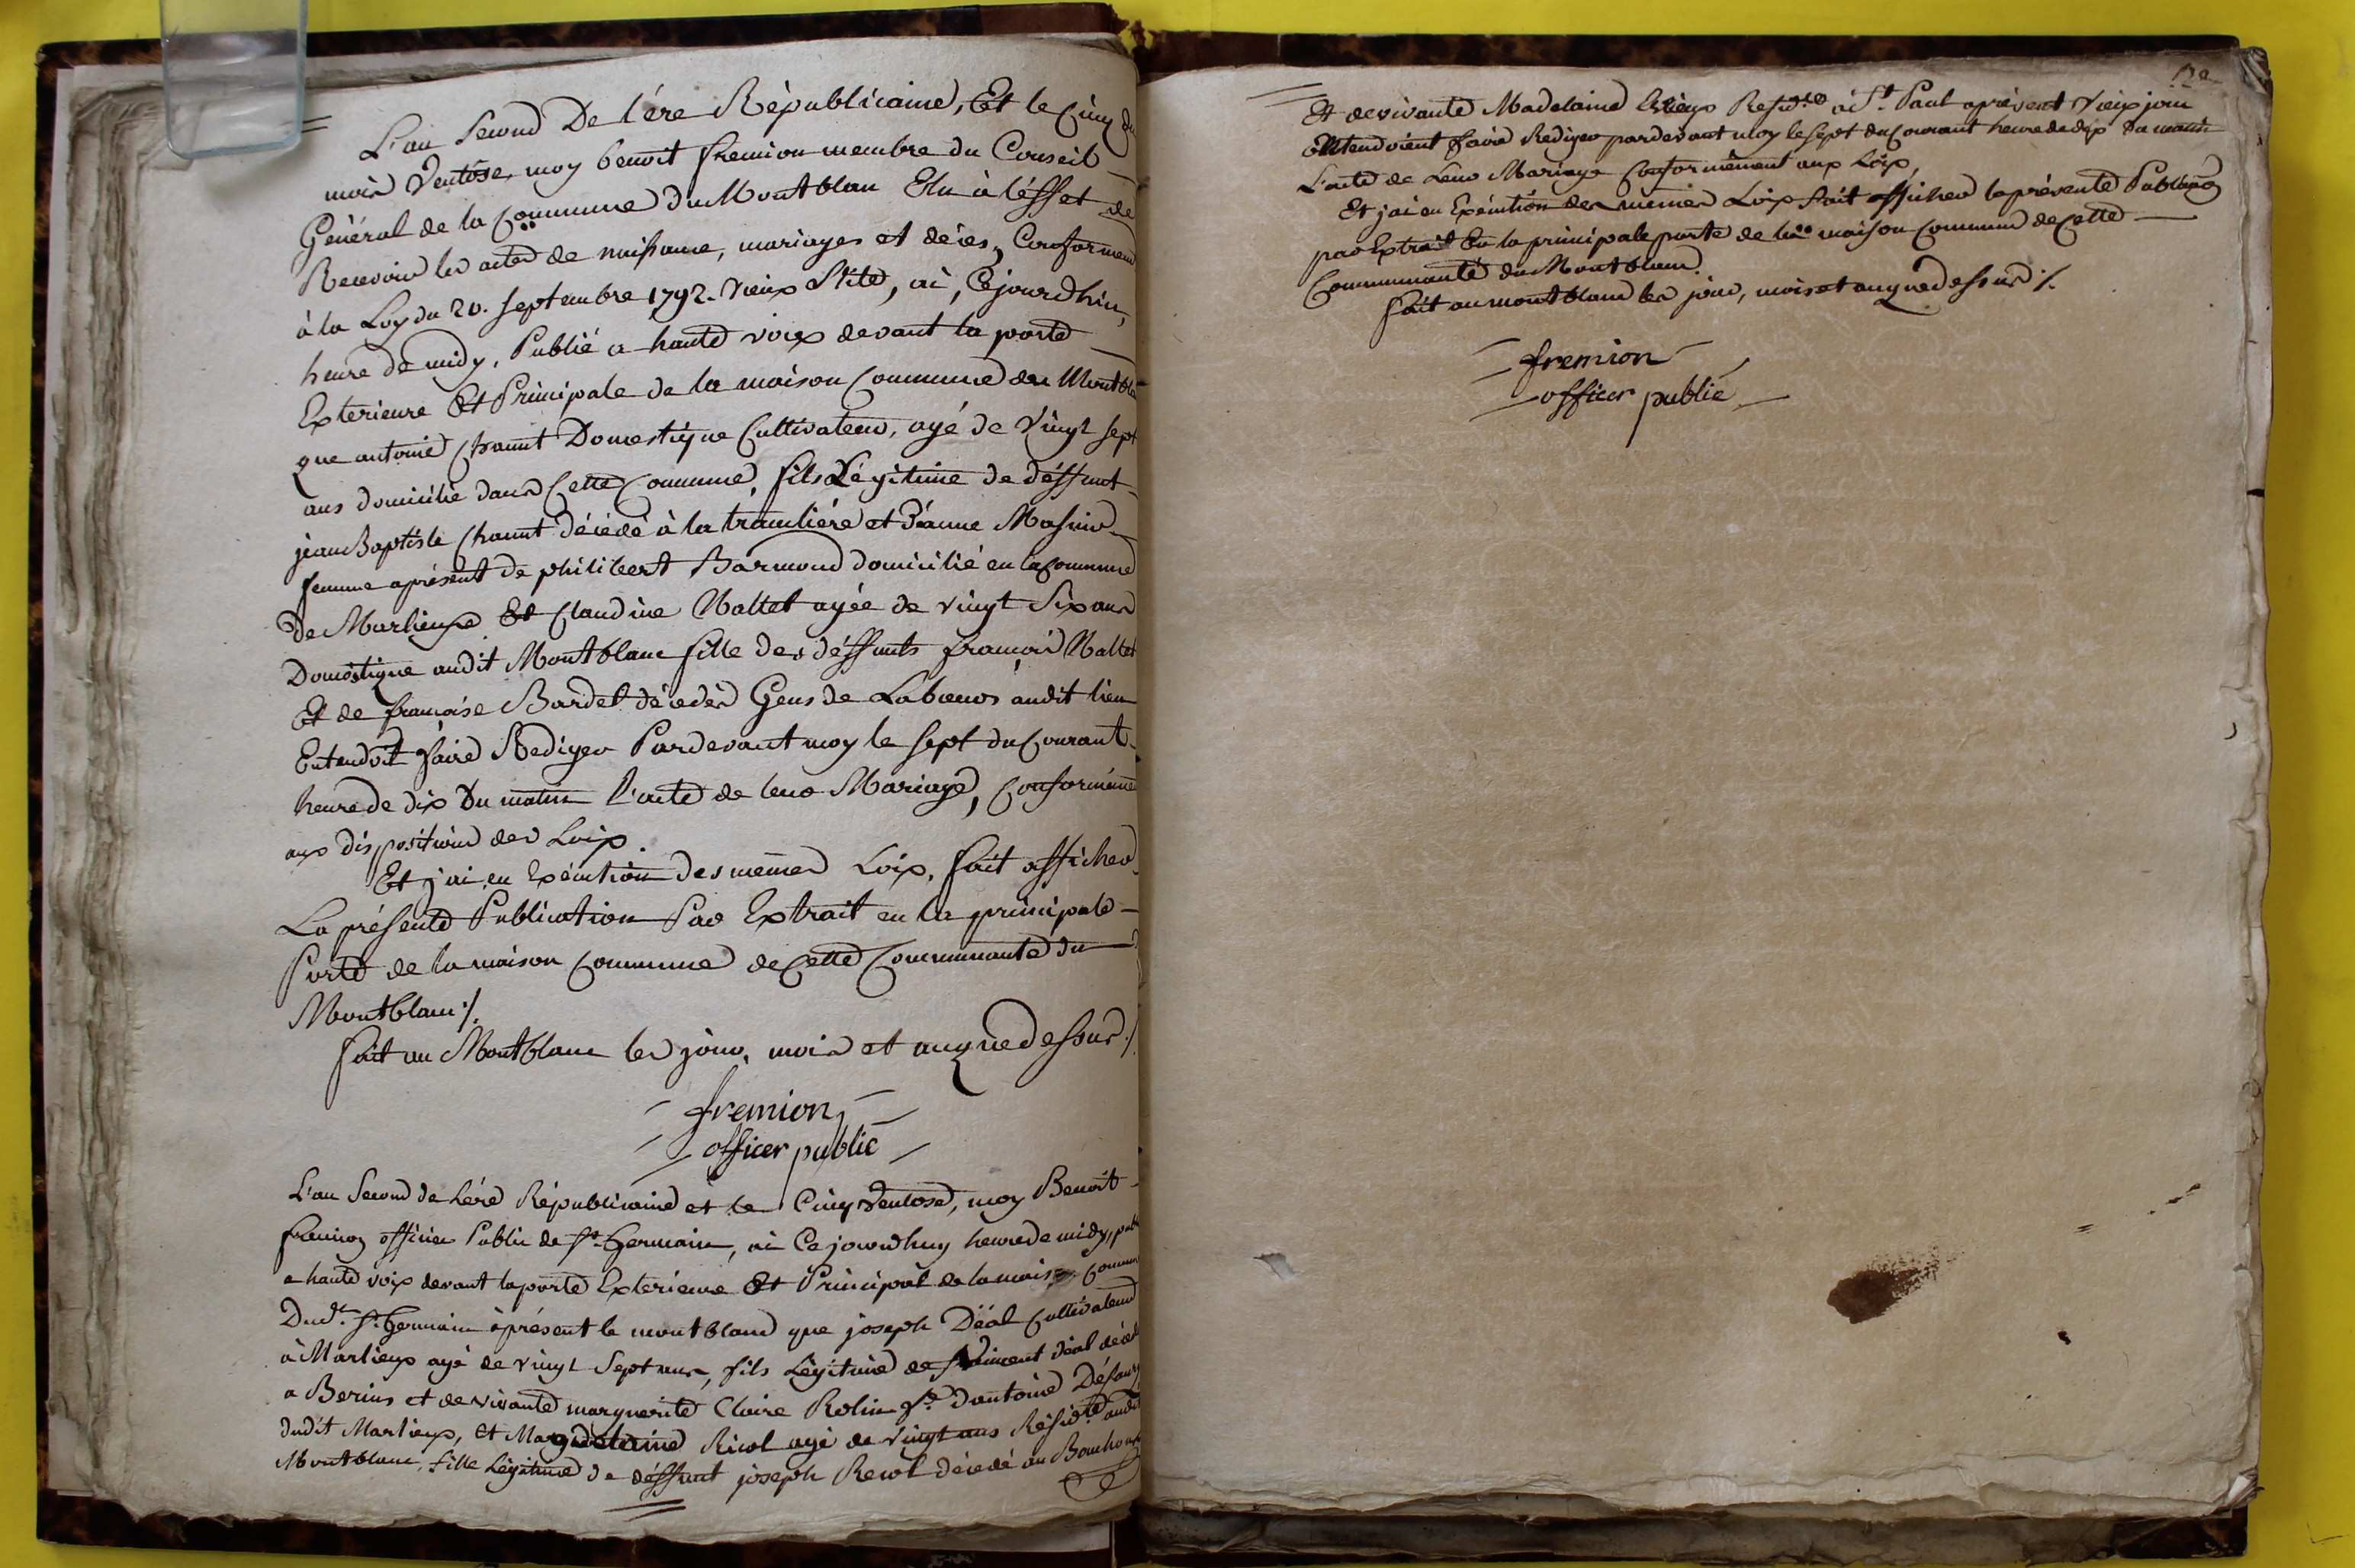 L'an Second De l'ére Républicaine, Et le Cinq du
mois Ventôse, moy benoit fremion membre du Conseil
Général de la Commune du Montblan Elu à l'éffet de
Recevoir les actes de naissance, mariages et décès, Conformem
à la Loy du 20. Septembre 1792. vieux Stile, ai, Cejourdhui,
heure de midy, Publié a haute voix devant la porte
Exterieure Et Principale de la maison Commune du Montbla
que antoine Chanut Domestique Cultivateur, agé de Vingt sept
ans domicilié dans Cette Commune, fils Légitime de déffunt
jean Baptiste Chanut décédé à la tranclière et Jéanne
femme aprésent de philibert Barmond domicilié en la Commune
de Marlieux Et Claudine Nallet agée de vingt Six ans
Doméstique audit Montblanc fille des déffunts françois Nallet
Et de françoise Bardet décédés Gens de Labeurs audit lieu
Entendoit faire Rediger Pardevant moy le sept du Courant
heure de dix Du matin l'acte de leur Mariage, Conformémen
aux dispositions des Loix.
Et j'ai en Exécution des mêmes Loix, fait afficher
La présente Publication Par Extrait en la principale
Porte de la maison Commune de Cette Communauté du
Montblanc ./.
fait au Montblanc les jour, mois et an que dessus ./.
fremion
officer public
L'an Second de l'ére Républicaine et le Cinq Ventose, moy Benoit
fremion officier Public de St. Germain, ai Cejourdhuy heure de midy, publ
a haute voix devant la porte Exterieure Et Principal de la maison Commu
Dud. St. Germain àprésent le montblanc que joseph Déal Cultivateur
à Marlieux agé de vingt Sept ans, fils Légitime de Vincent déal décéd
a Berins et de vivante marguerite Claire Rolin fe. D'antoine
dudit Marlieux, Et Ricol agé de vingt ans Résidte. audit
Montblanc, fille Légitime de déffunt joseph Recol décédé au
Et de vivante Madelaine Residte. à St. Paul aprésent Vieux jou
Entendoient faire Rediger pardevant moy le sept du Courant heure de dix du matin
L'acte de leur Mariage Conformément aux Loix,
Et j'ai en Exécution des memes Loix fait afficher la présente Publicaõn
par Extrait En la principale porte de la maison Commune de Cette
Communauté du Montblanc.
fait au montblanc les jour, mois et an que dessus ./.
fremion
officer public